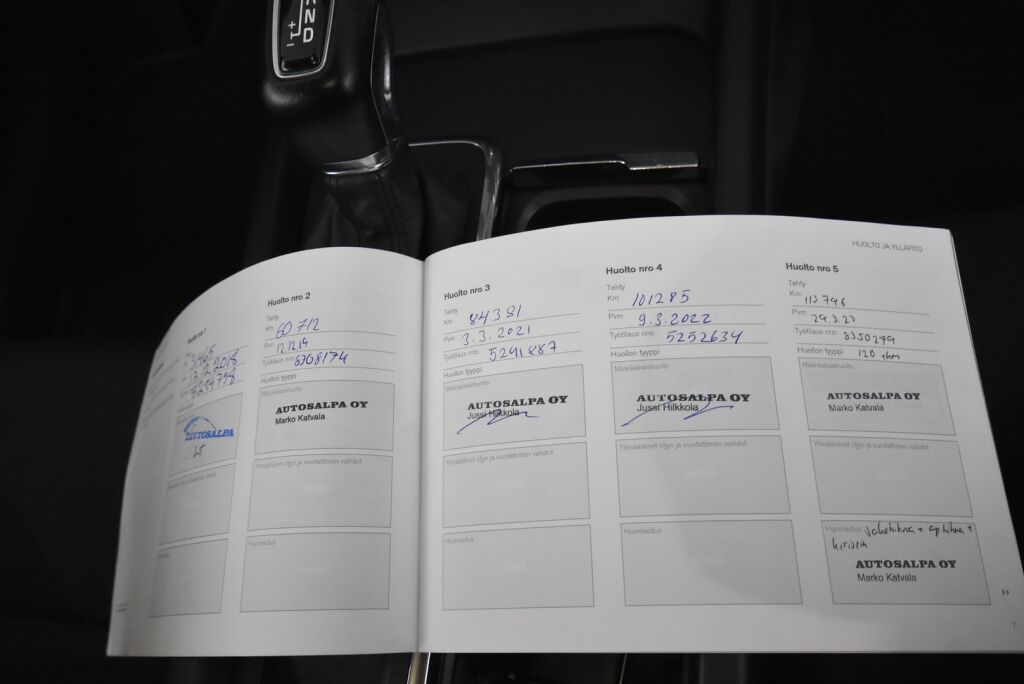 R
N
D
+
−
HUOLTO JA YLLÄPITO
13.12.2018
9214758
AUTOSALPA
Huolto nro 2
Tehty
Km 60 712
Pvm 12.12.19
Työtilaus nro: 8308174
Huollon tyyppi
AUTOSALPA OY
Marko Katvala
Ylimääräiset öljyn ja suodattimen vaihdot
Huomautus
Huolto nro 3
Tehty
Km 84 391
Pvm 3.3.2021
Työtilaus nro: 5241887
Huollon tyyppi
Määräaikaishuolto
AUTOSALPA OY
Jussi Hilkkola
Ylimääräiset öljyn ja suodattimen vaihdot
Huomautus
Huolto nro 4
Tehty
Km 101285
Pvm 9.3.2022
Työtilaus nro: 5252634
Huollon tyyppi
Määräaikaishuolto
AUTOSALPA OY
Jussi Hilkkola
Ylimääräiset öljyn ja suodattimen vaihdot
Huomautus
Huolto nro 5
Tehty
Km 113 796
Pvm 29.3.23
Työtilaus nro: 8350299
Huollon tyyppi 120 tkm
Määräaikaishuolto
AUTOSALPA OY
Marko Katvala
Ylimääräiset öljyn ja suodattimen vaihdot
Huomautus jakohihna + ap hihna +
kiristin
AUTOSALPA OY
Marko Katvala
››
7